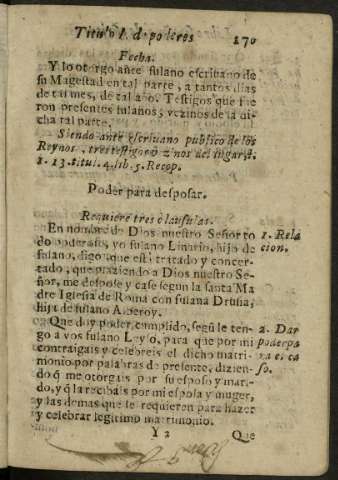 Titulo I. d. poderes 170
Fecha.
Y lo otorgo ante fulano escribano de
su Magestad en tal parte, a tantos dias
de tal mes, de tal año. Testigos que fue
ron presentes fulanos, vezinos de la di-
cha tal parte.
Siendo ante escribano publico de los
Reynos, tres testigos vezinos del lugar,
1. 13. titul. 4. lib. 5. Recop.
Poder para desposar.
Requiere tres clausulas.
En nombre de Dios nuestro Señor to
do poderoso, yo fulano Linario, hijo de
fulano, digo, que està tratado y concer-
tado, que plaziendo a Dios nuestro Se-
ñor, me despose y case segun la santa Ma
dre Iglesia de Roma con fulana Drusia,
hija de fulano Alberoy.
1. Rela
cion.
Que doy poder cumplido, segũ le ten-
go a vos fulano Leyso, para que por mi
contraigais y celebreis el dicho matri-
monio por palabras de presente, dizien-
do q̃ me otorgais por su esposo y mari-
do, y q̃ la recibais por mi esposa y muger,
y las demas que se requieren para hazer
y celebrar legitimo matrimonio.
2. Dar
poder pa
ra el ca
so.
Y 2 Que